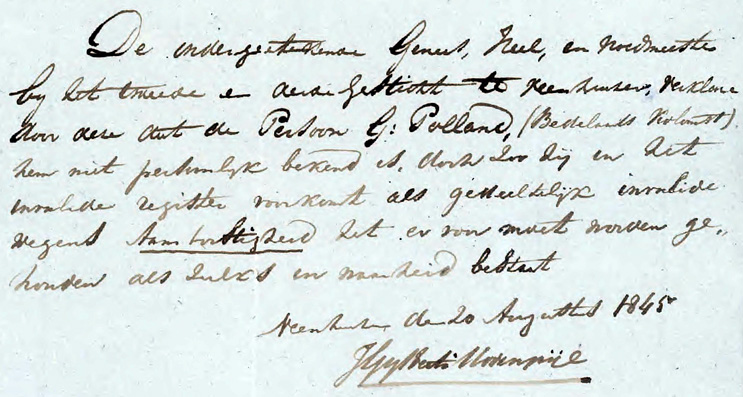 De ondergeteekende Genees, Heel, en Vroedmeester
by het tweede en derde Gesticht te Veenhuizen, verklare
door deze dat de Persoon G: Polland, (Bedelaars Kolonist)
hem niet persoonlyk bekend is, doch zoo hij in het
invalide register voorkomt als gedeeltelijk invalide
wegens Aamborstigheid het er voor moet worden ge„
houden als zulks in waarheid bestaat
Veenhuizen de 20 Augustus 1845